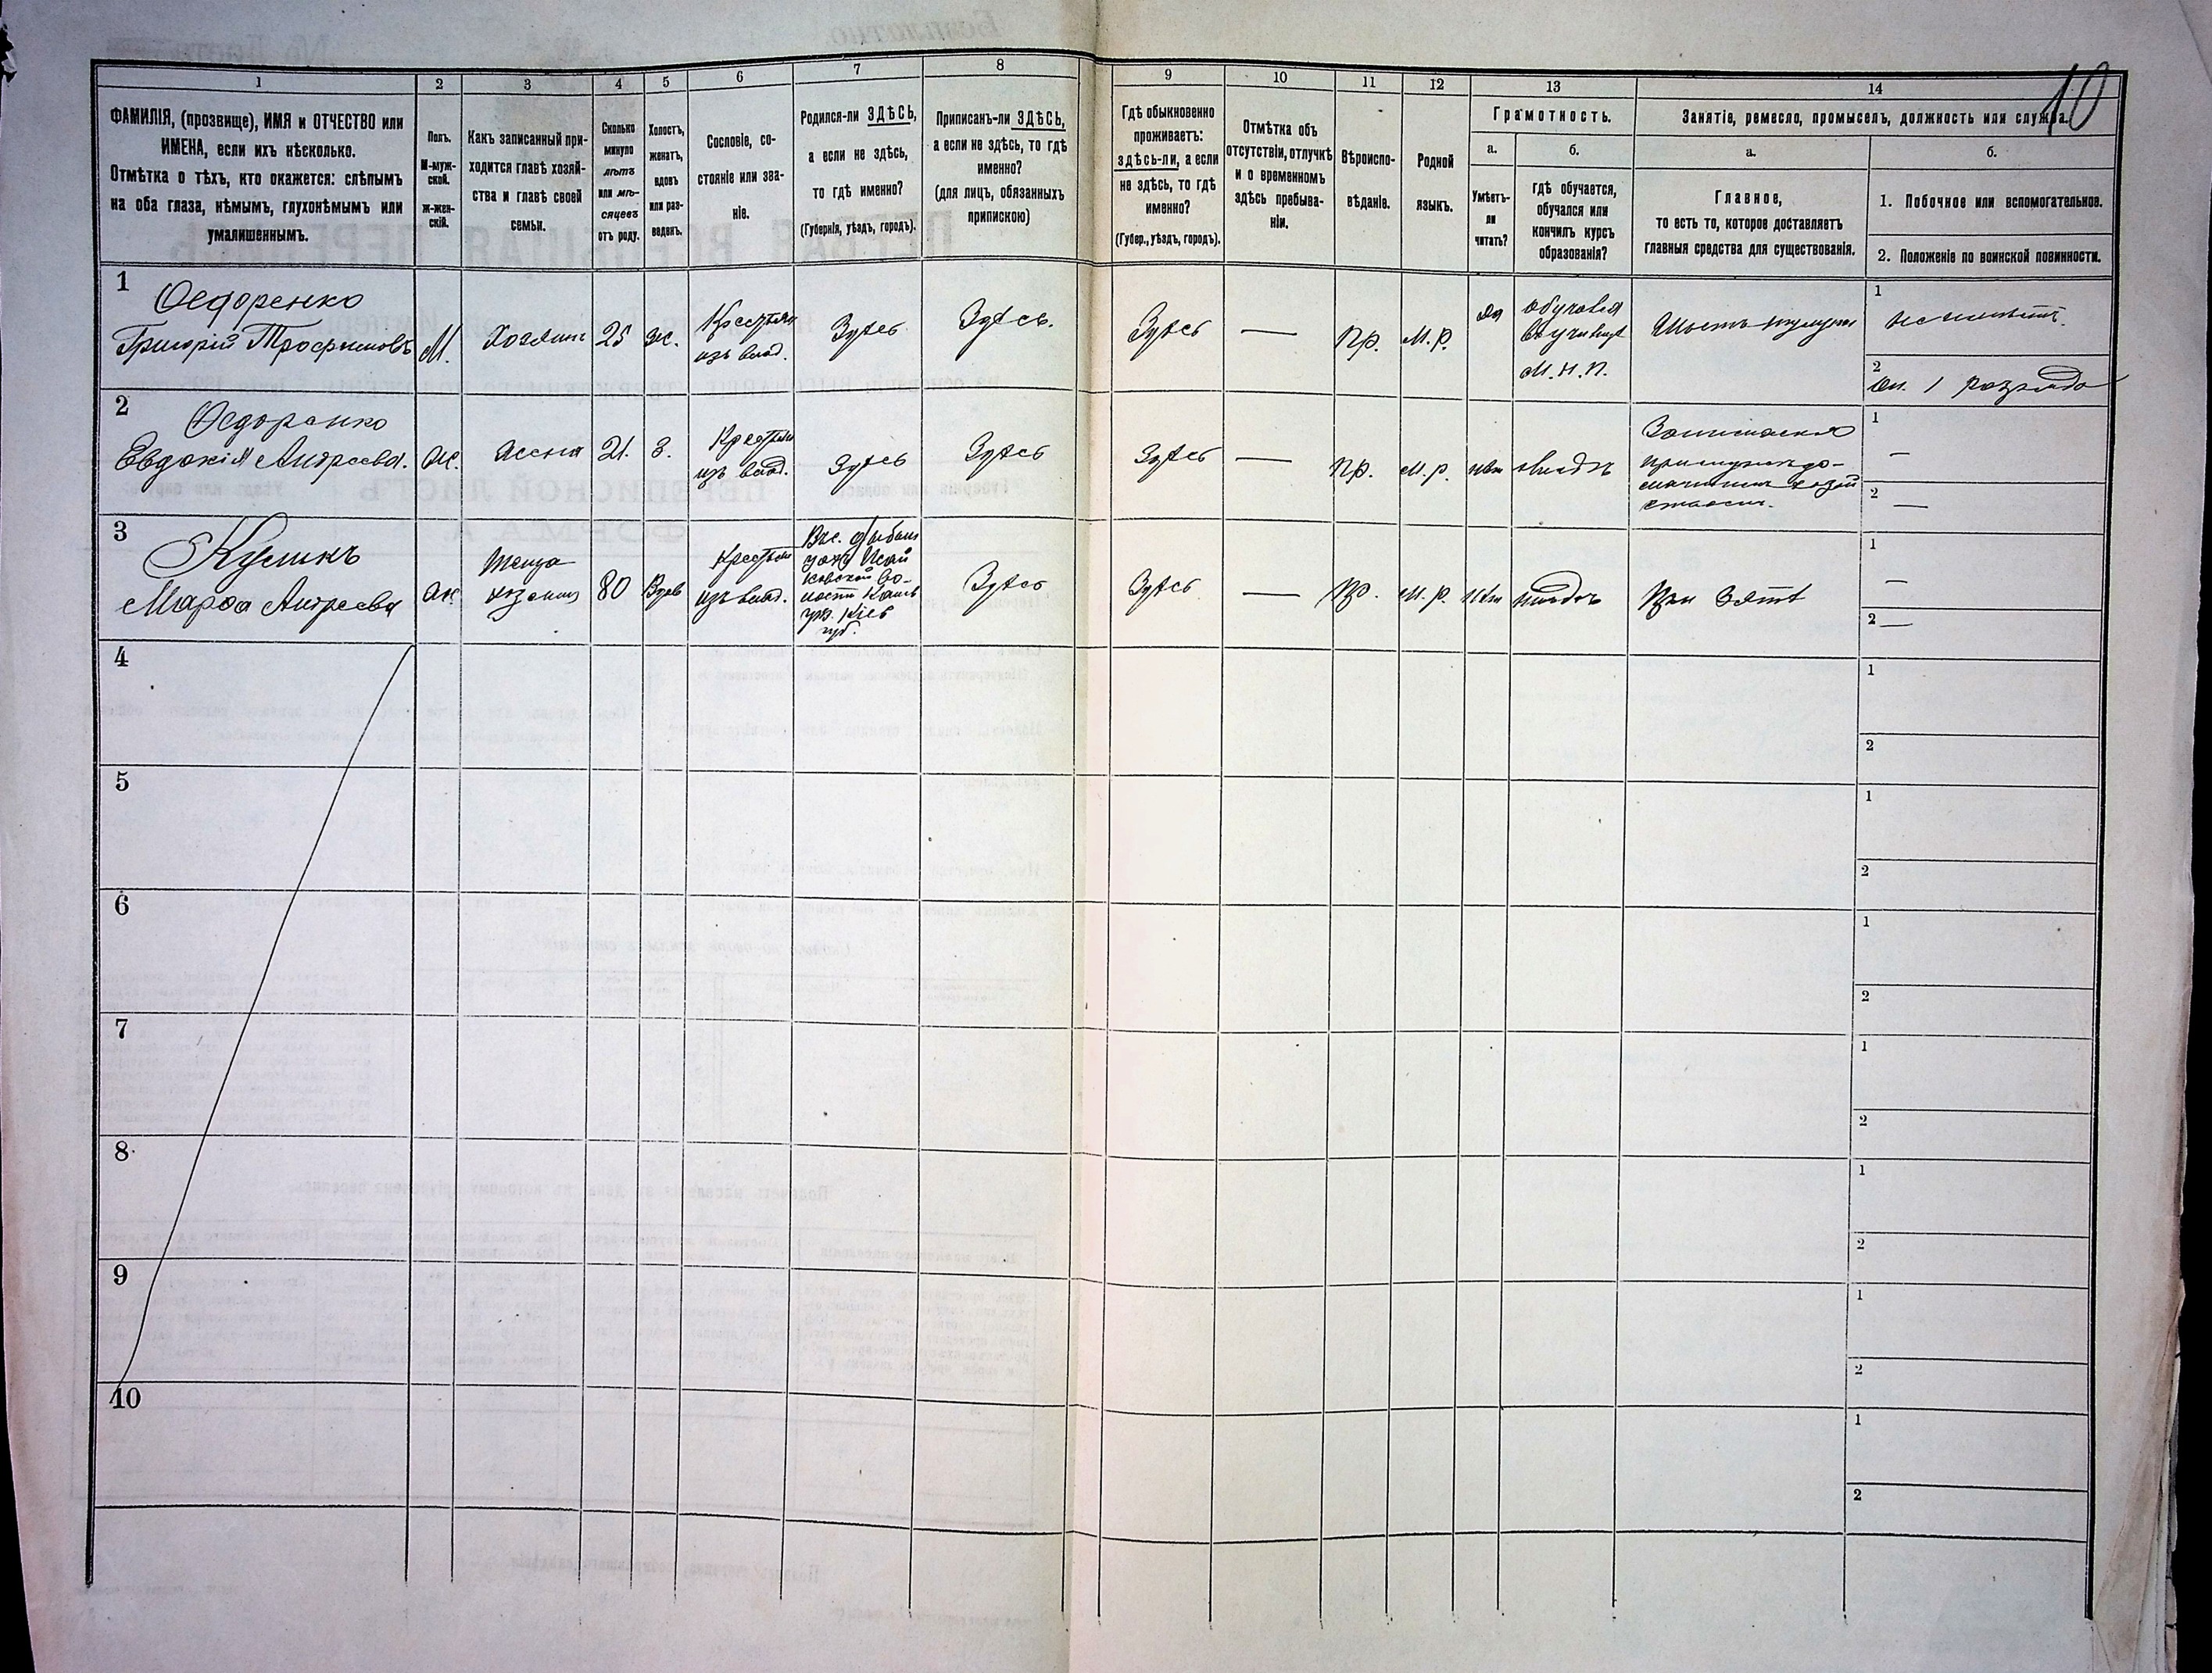 10
1
2
3
4
5
6
7
8
9
10
11
12
13
14
ФАМИЛІЯ, (прозвище), ИМЯ и ОТЧЕСТВО или
ИМЕНА, если ихъ нѣсколько.
Отмѣтка о тѣхъ, кто окажется: слѣпымъ
на оба глаза, нѣмымъ, глухонѣмымъ или
умалишеннымъ.
Полъ.
М-муж-
ской.
Ж-жен-
скій.
Какъ записанный при-
ходится главѣ хозяй-
ства и главѣ своей
семьи.
Сколько
минуло
лѣтъ
или мѣ-
сяцевъ
отъ роду.
Холостъ,
женатъ,
вдовъ
или раз-
веденъ.
Сословіе, со-
стояніе или зва-
ніе.
Родился-ли ЗДѢСЬ,
а если не здѣсь,
то гдѣ именно?
(Губернія, уѣздъ, городъ).
Приписанъ-ли ЗДѢСЬ,
а если не здѣсь, то гдѣ
именно?
(для лицъ, обязанныхъ
припискою)
Гдѣ обыкновенно
проживаетъ:
здѣсь-ли, а если
не здѣсь, то гдѣ
именно?
(Губер., уѣздъ, городъ).
Отмѣтка объ
отсутствіи, отлучкѣ
и о временномъ
здѣсь пребыва-
ніи.
Вѣроиспо-
вѣданіе.
Родной
языкъ.
Грамотность.
а.
Умѣетъ-
ли
читать?
б.
гдѣ обучается,
обучался или
кончилъ курсъ
образованія?
Занятіе, ремесло, промыселъ, должность или служба.
а.
Главное,
то есть то, которое доставляетъ
главныя средства для существованія.
б.
1. Побочное или вспомогательное.
2. Положеніе по воинской повинности.
1
Ѳедоренко
Григорій Трофимовъ
М.
Хозяинъ
25
ж.
Крестьян
изъ влад.
Здѣсь
Здѣсь.
Здѣсь
—
Пр.
М.р.
да
обучался
въ училищѣ
М.Н.П.
1
2
1 разряда
2
Ѳедоренко
Евдокія Андреева.
Ж.
Жена
21.
З.
Крестьян
изъ влад.
Здѣсь
Здѣсь
Здѣсь
—
Пр.
М.р.
нѣтъ
1 —
2 —
3
Куликъ
Марѳа Андреева
Ж.
Теща
хозяина
80
Вдов
Крестьян
изъ влад.
уѣз. Кіев
губ.
Здѣсь
Здѣсь
—
Пр.
М.р.
нѣтъ
При зятѣ
1 —
2 —
4
1
2
5
1
2
6
1
2
7
1
2
8
1
2
9
1
2
10
1
2